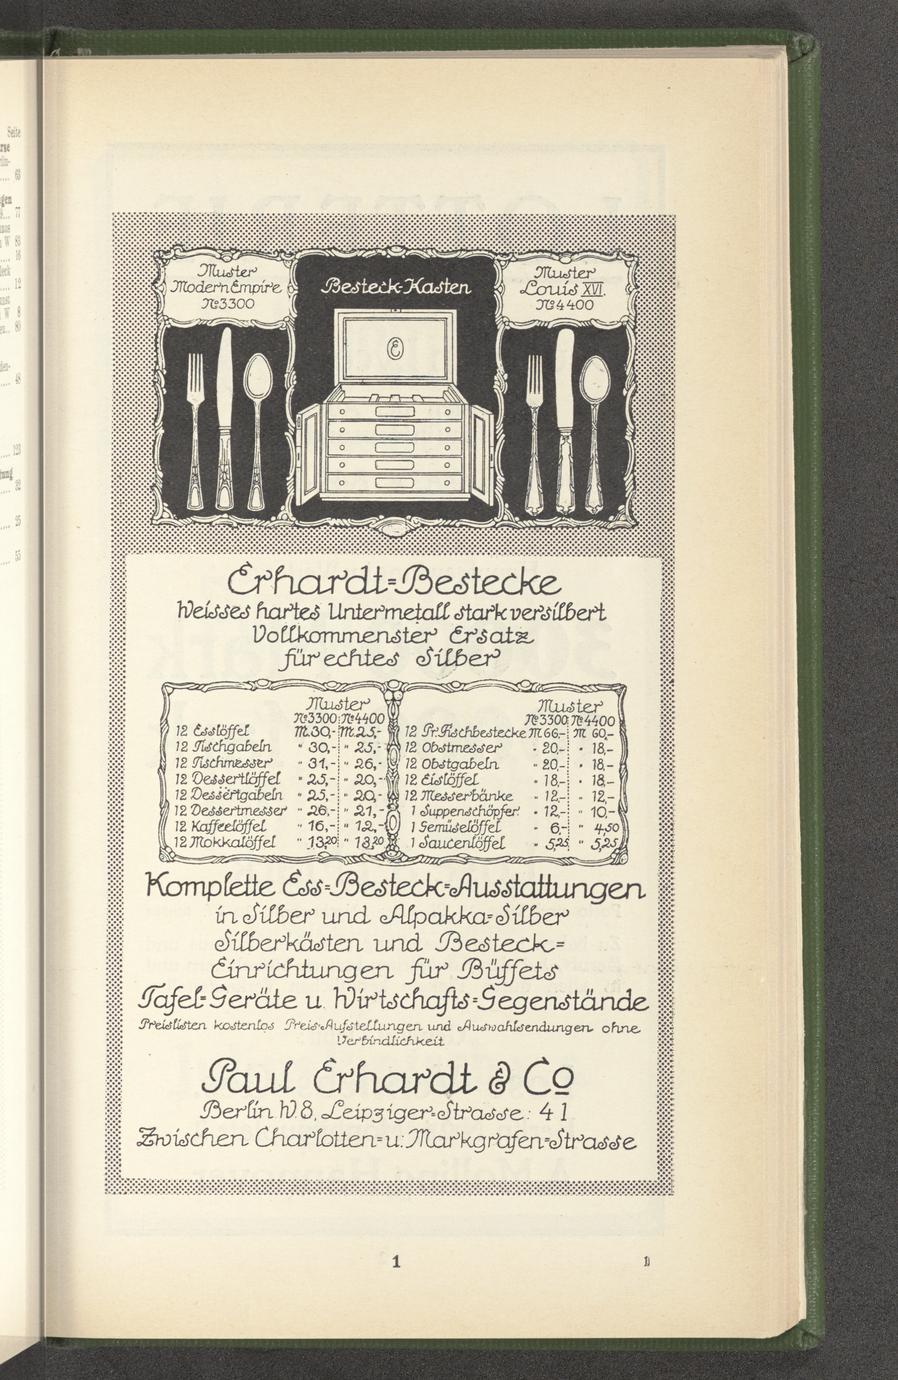 Muster
Modern Empire
No 3300
Besteck-Kasten
Muster
Louis XVI.
No 4400
E
Erhardt=Bestecke
Weisses hartes Untermetall stark versilbert
Vollkommenster Ersatz
für echtes Silber
Muster
No 3300 No 4400
12 Esslöffel M. 30,- M. 25,-
12 Tischgabeln " 30,- " 25,-
12 Tischmesser " 31,- " 26,-
12 Dessertlöffel " 25,- " 20,-
12 Dessertgabeln " 25,- " 20,-
12 Dessertmesser " 26,- " 21,-
12 Kaffeelöffel " 16,- " 12,-
12 Mokkalöffel " 13,20 " 13,20
Muster
No 3300 No 4400
12 Pr. Fischbestecke M 66,- M 60,-
12 Obstmesser " 20,- " 18,-
12 Obstgabeln " 20,- " 18,-
12 Eislöffel " 18,- " 18,-
12 Messerbänke " 12,- " 12,-
1 Suppenschöpfer " 12,- " 10,-
1 Gemüselöffel " 6,- " 4,50
1 Saucenlöffel " 5,25 " 5,25
Komplette Ess=Besteck=Ausstattungen
in Silber und Alpakka=Silber
Silberkästen und Besteck=
Einrichtungen für Büffets
Tafel=Geräte u. Wirtschafts=Gegenstände
Preislisten kostenlos Preis=Aufstellungen und Auswahlsendungen ohne
Verbindlichkeit
Paul Erhardt & Co
Berlin W. 8, Leipziger=Strasse: 41
Zwischen Charlotten= u. Markgrafen=Strasse
1